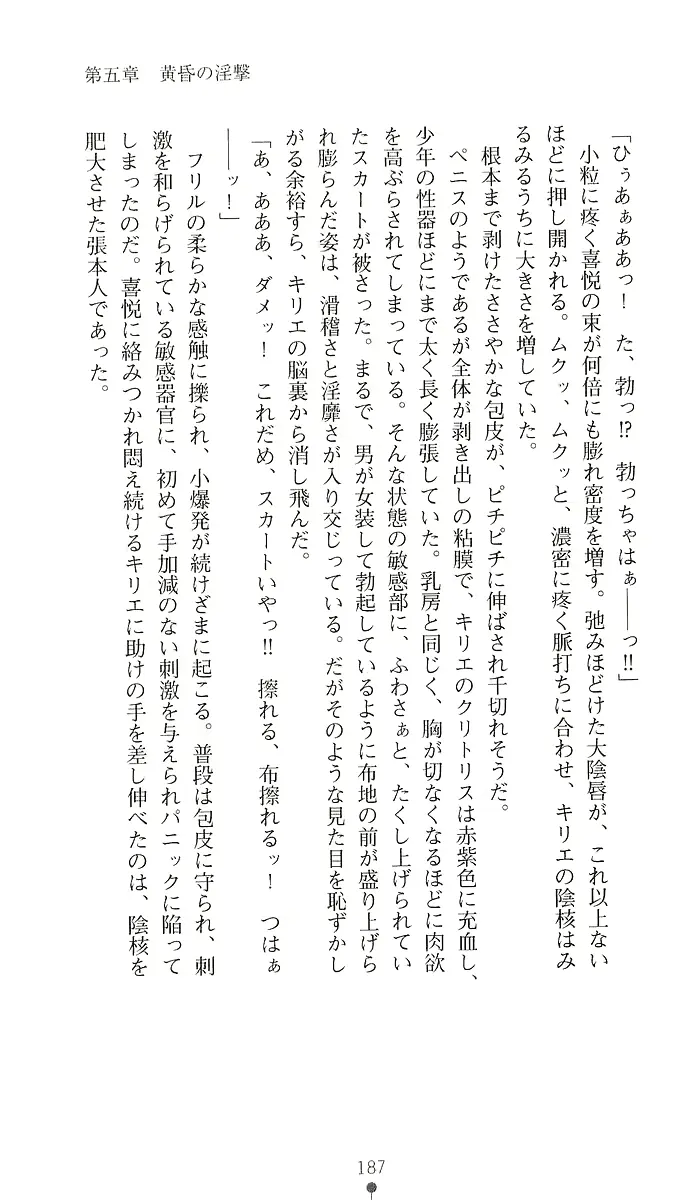 第五章　黄昏の淫撃
「ひぅあぁああっ！　た、勃っ!?　勃っちゃはぁ――っ!!」
　小粒に疼く喜悦の束が何倍にも膨れ密度を増す。弛みほどけた大陰唇が、これ以上ない
ほどに押し開かれる。ムクッ、ムクッと、濃密に疼く脈打ちに合わせ、キリエの陰核はみ
るみるうちに大きさを増していた。
　根本まで剥けたささやかな包皮が、ピチピチに伸ばされ千切れそうだ。
　ペニスのようであるが全体が剥き出しの粘膜で、キリエのクリトリスは赤紫色に充血し、
少年の性器ほどにまで太く長く膨張していた。乳房と同じく、胸が切なくなるほどに肉欲
を高ぶらされてしまっている。そんな状態の敏感部に、ふわさぁと、たくし上げられてい
たスカートが被さった。まるで、男が女装して勃起しているように布地の前が盛り上げら
れ膨らんだ姿は、滑稽さと淫靡さが入り交じっている。だがそのような見た目を恥ずかし
がる余裕すら、キリエの脳裏から消し飛んだ。
「あ、あああ、ダメッ！　これだめ、スカートいやっ!!　擦れる、布擦れるッ！　つはぁ
――ッ！」
　フリルの柔らかな感触に擽られ、小爆発が続けざまに起こる。普段は包皮に守られ、刺
激を和らげられている敏感器官に、初めて手加減のない刺激を与えられパニックに陥って
しまったのだ。喜悦に絡みつかれ悶え続けるキリエに助けの手を差し伸べたのは、陰核を
肥大させた張本人であった。
187